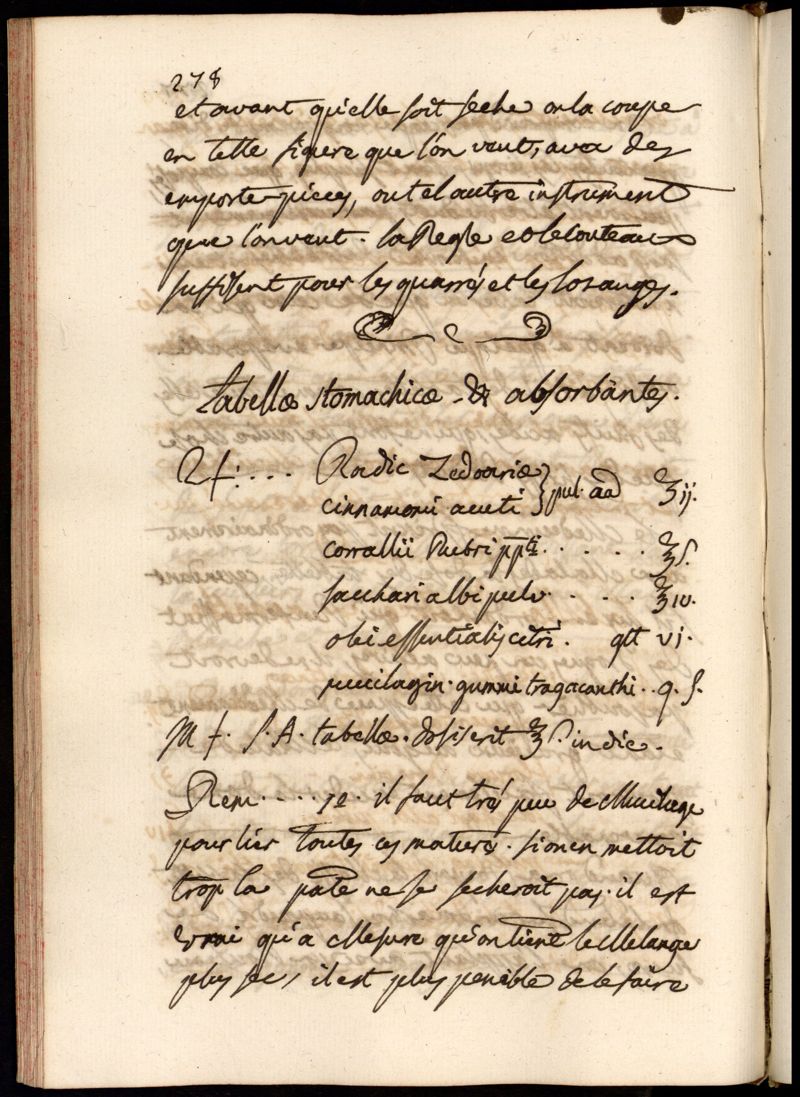 278
et avant qu'elle soit seche on la coupe
en telle figure que l'on veut, avec des
emporte-pieces, ou tel autre instrument
que l'on veut. la Regle et le Couteau
suffisent pour les quarrés et les losanges.
tabellæ stomachicæ & absorbantes.
♃: ... Radic Zedoariæ } pul. aā ʒij.
cinnamomi acuti
corrallii Rubri ppti ...... ʒß.
sacchari albi pulv .... ℥iv.
olei essentialis citri. gtt vj.
mucilagin. gummi tragacanthi .. q. s.
M f. S. A. tabellæ. dosis erit ʒß. in die.
Rem .... 1e. il faut trés peu de Mucilage
pour lier toutes ces matiers. si on en mettoit
trop la pate ne se secheroit pas. il est
vrai qu'a Mesure qu'on tient le Melange
plus sec, il est plus penible de le faire